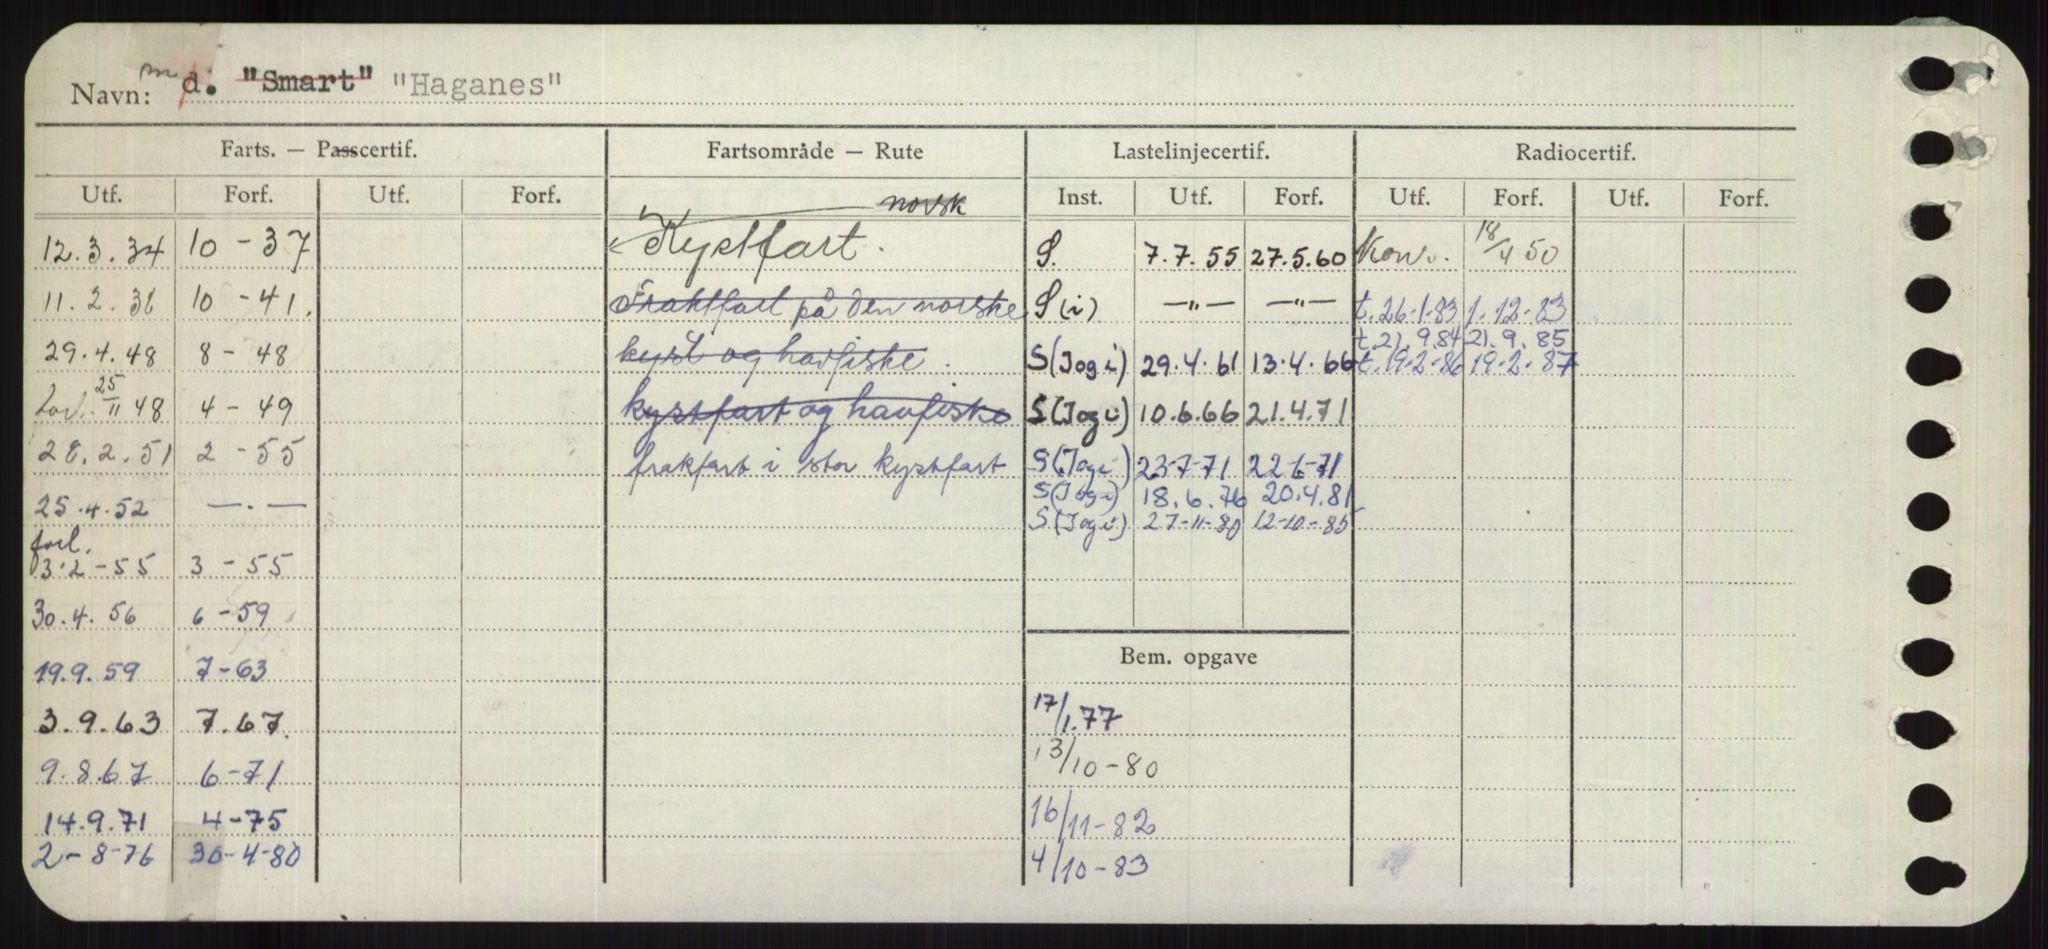 Navn: m d. "Smart" "Haganes"
Farts. — Passcertif. Fartsområde — Rute Lastelinjecertif. Radiocertif.
Utf. Forf. Utf. Forf. norsk Inst. Utf. Forf. Utf. Forf. Utf. Forf.
12.3.34 10 - 37 Kystfart. S. 7.7.55 27.5.60 Konv. 18/4 50
11.2.38 10 - 41. Fraktfart på den norske S(i) —"— —"— t.26-1-83 1-12-83
t.21.9.84 21.9.85
29.4.48 8 - 48 kyst og havfiske. S(Jogi) 29.4.61 13.4.66 t.19-2-86 19-2-87
forl. 25/11 48 4 - 49 kystfart og havfiske S(Jogi) 10.6.66 21.4.71
28.2.51 2 - 55 fraktfart i stor kystfart S(Jogi) 23-7-71 22-6-71
25.4.52 —.— S(Jogi) 18.6.76 20.4.81
S(Jogi) 27-11-80 12-10-85
forl.
3.2-55 3 - 55
30.4.56 6 - 59
Bem. opgave
19.9.59 7 - 63
3.9.63 7.67. 17/1.77
9.8.67 6 - 71 13/10-80
14.9.71 4 - 75 16/11-82
2-8-76 30-4-80 4/10-83